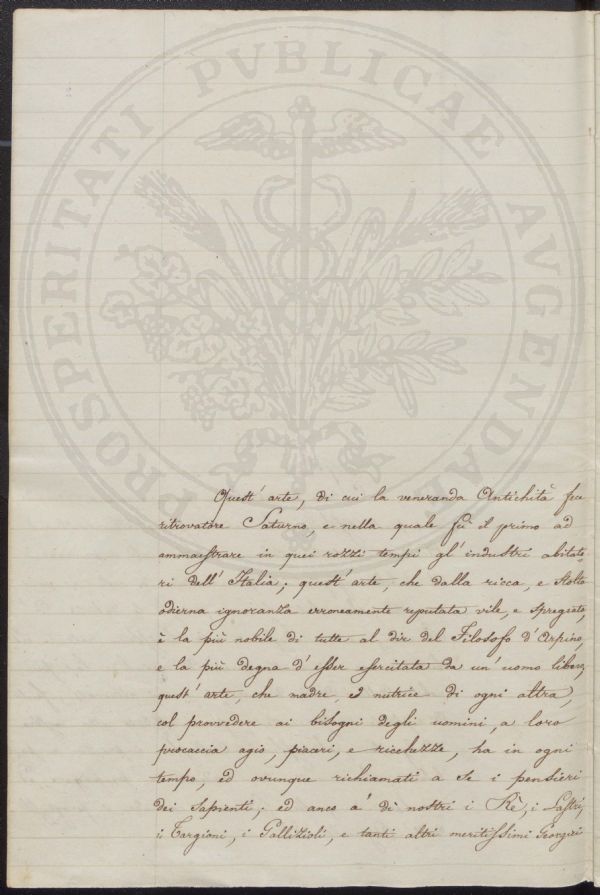 PROSPERITATI PVBLICAE AVGENDAE
Quest' arte, di cui la veneranda Antichità fece
ritrovatore Saturno, e nella quale fù il primo ad
ammaestrare in quei rozzi tempi gl' industri abitato=
ri dell' Italia; quest' arte, che dalla ricca, e stolta
odierna ignoranza erroneamente reputata vile, e spregiata,
è la più nobile di tutte al dir del Filosofo d' Arpino,
e la più degna d' esser esercitata da un' uomo libero;
quest' arte, che madre, e nutrice di ogni altra,
col provvedere ai bisogni degli uomini, a loro
procaccia agio, piaceri, e ricchezze, ha in ogni
tempo, ed ovunque richiamati a se i pensieri
dei Sapienti; ed anco a' dì nostri i Rè, i Lastri,
i Targioni, i Gallizioli, e tanti altri meritissimi Georgici